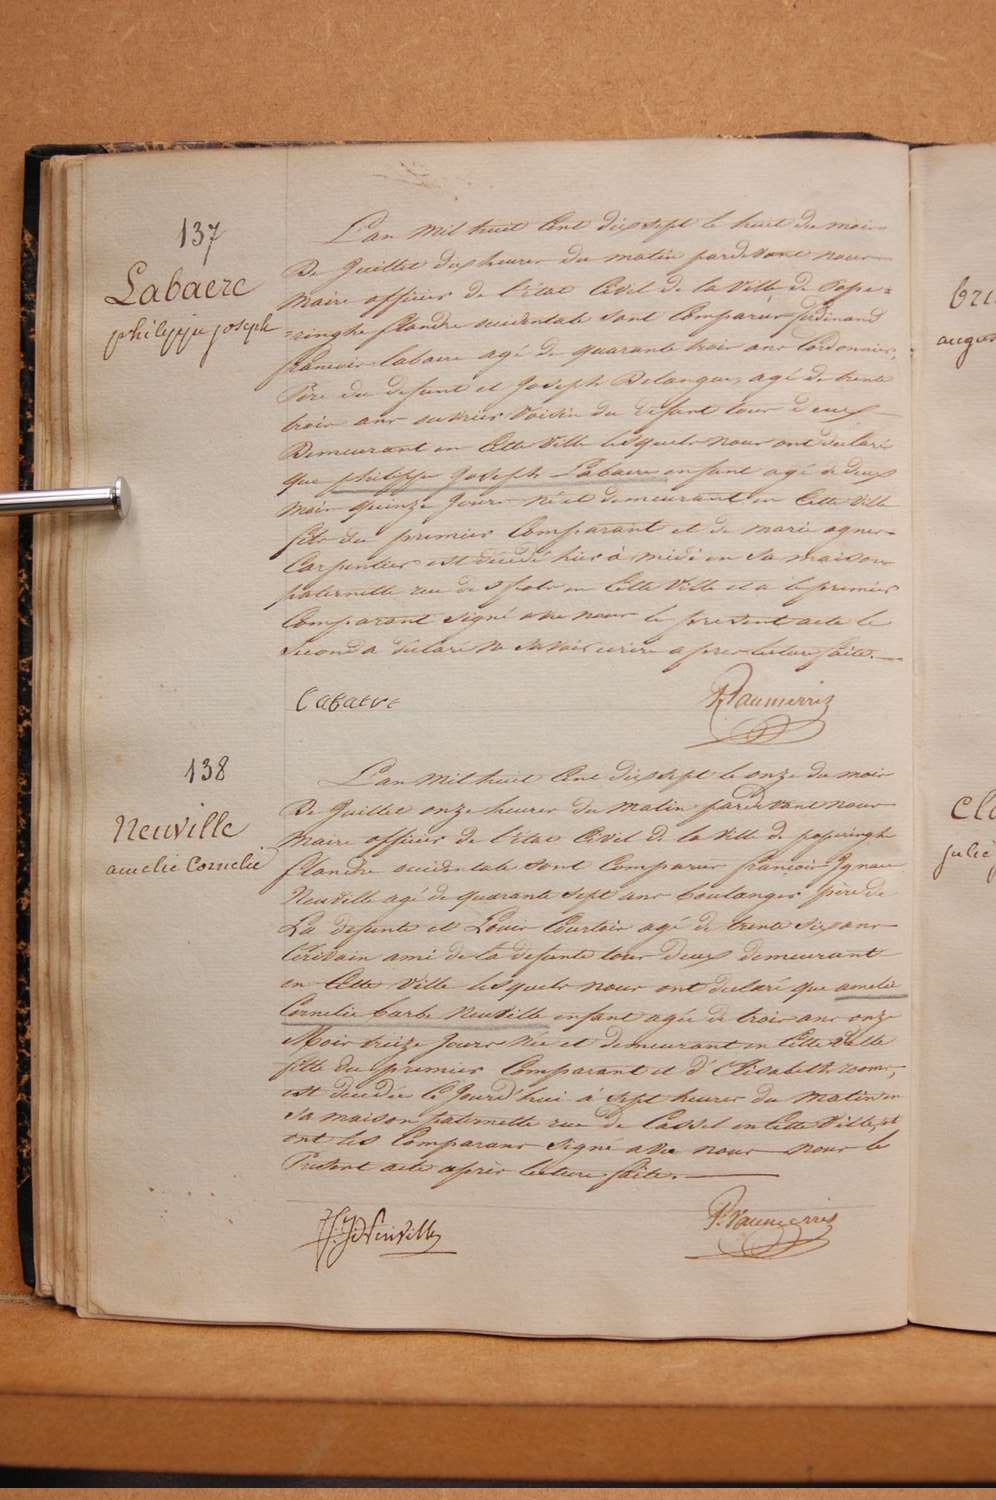 137
Labaere
philippe joseph
L'an mil huit Cent dix sept le huit du mois
De Juillet dix heures du matin pardevant nous
maire officier de l'état Civil de la Ville de Pope=
=ringhe flandre occidentale sont Comparus ferdinand
francois Labaere agé de quarante trois ans Cordonnier,
Père du defunt et Joseph Delangue, agé de trente
trois ans ouvrier Voisin du defunt tous deux
Demeurant en Cette Ville lesquels nous ont déclaré
que philippe Joseph Labaere enfant agé de deux
mois quinze Jours né et demeurant en Cette Ville
fils du premier Comparant et de marie agnes
Carpentier est décédé hier à midi en Sa maison
paternelle rue de en Cette Ville et a le premier
Comparant signé avec nous le present acte le
Second a déclaré ne savoir ecrire apres lecture faite.
Labaere
138
Neuville
amelie Cornelie
L'an mil huit Cent dix sept le onze du mois
De Juillet onze heures du matin pardevant nous
maire officier de l'état Civil de la Ville de poperinghe
flandre occidentale sont Comparus francois Ignace
Neuville agé de quarante sept ans boulanger père de
La defunte et Louis Courtois agé de trente six ans
Ecrivain ami de la defunte tous deux demeurant
en Cette Ville lesquels nous ont declaré que amelie
Cornelie barbe Neuville enfant agée de trois ans onze
Mois treize Jours née et demeurant en Cette Ville
fille du premier Comparant et d'Elisabeth
est decedée Ce Jourd'hui à sept heures du matin en
Sa maison paternelle rue de Cassel en Cette Ville, et
ont les Comparans signé avec nous nous le
Present acte après lecture faite.
Neuville
augus
Cla
julie